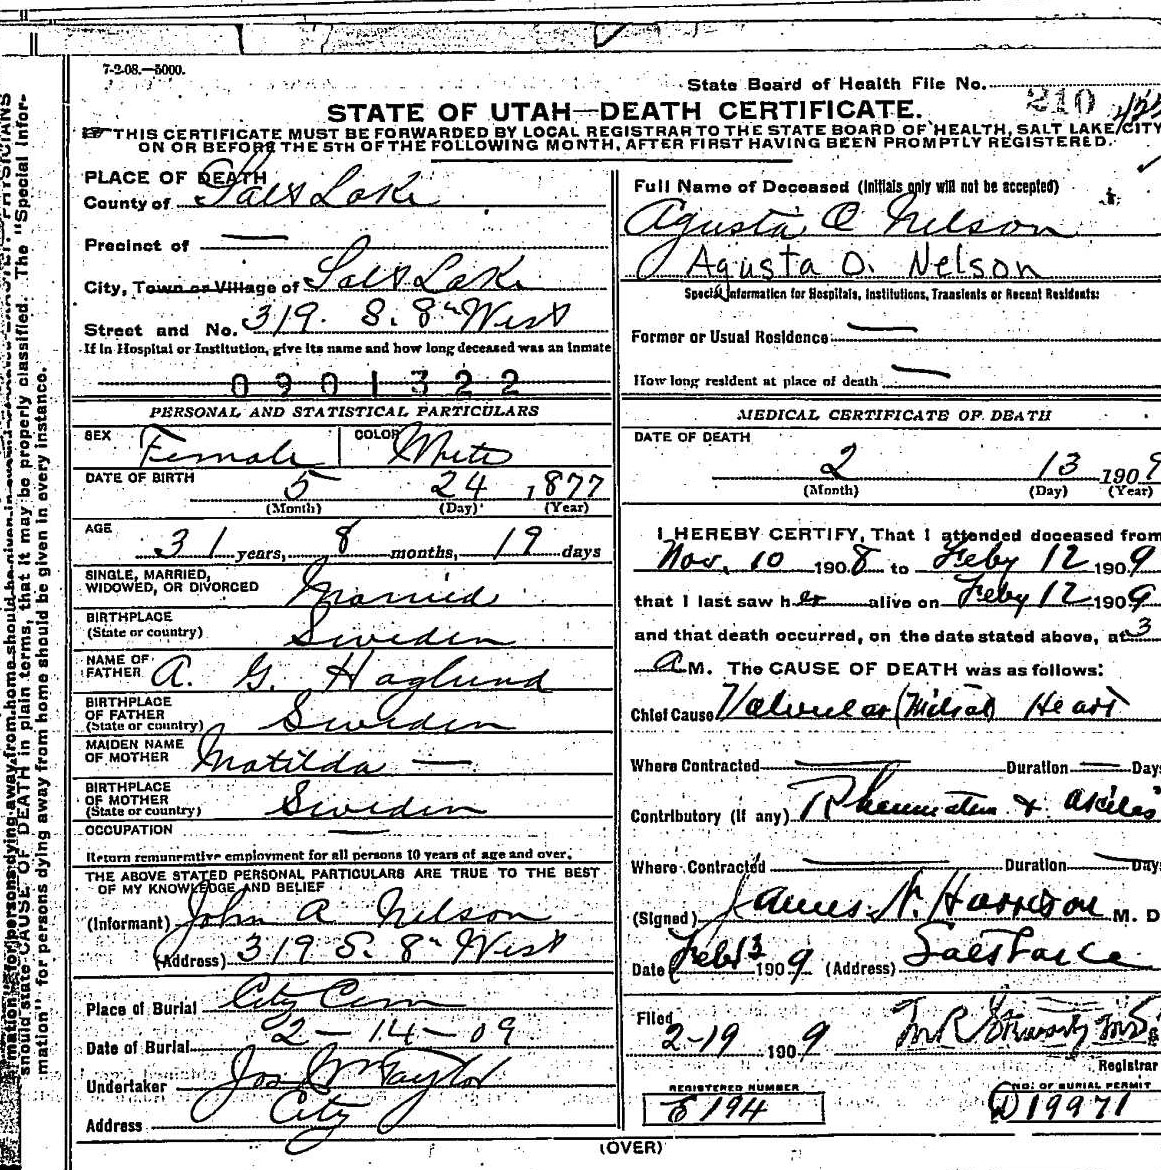 7-2-08.—5000.
State Board of Health File No. 210
STATE OF UTAH—DEATH CERTIFICATE.
THIS CERTIFICATE MUST BE FORWARDED BY LOCAL REGISTRAR TO THE STATE BOARD OF HEALTH, SALT LAKE CITY
ON OR BEFORE THE 5TH OF THE FOLLOWING MONTH, AFTER FIRST HAVING BEEN PROMPTLY REGISTERED.
PLACE OF DEATH
County of Salt Lake
Precinct of —
City, Town or Village of Salt Lake
Street and No. 319. S. 8th West
If in Hospital or Institution, give its name and how long deceased was an inmate
0901322
PERSONAL AND STATISTICAL PARTICULARS
SEX Female COLOR White
DATE OF BIRTH 5 24 1877
(Month) (Day) (Year)
AGE 31 years, 8 months, 19 days
SINGLE, MARRIED,
WIDOWED, OR DIVORCED Married
BIRTHPLACE
(State or country) Sweden
NAME OF
FATHER A. G. Haglund
BIRTHPLACE
OF FATHER
(State or country) Sweden
MAIDEN NAME
OF MOTHER Matilda —
BIRTHPLACE
OF MOTHER
(State or country) Sweden
OCCUPATION —
Return remunerative employment for all persons 10 years of age and over.
THE ABOVE STATED PERSONAL PARTICULARS ARE TRUE TO THE BEST
OF MY KNOWLEDGE AND BELIEF
(Informant) John A Nelson
(Address) 319 S. 8th West
Place of Burial City Cem
Date of Burial 2-14-09
Undertaker Jos Wm Taylor
Address City
Full Name of Deceased (Initials only will not be accepted)
Agusta O Nelson
Agusta O. Nelson
Special Information for Hospitals, Institutions, Transients or Recent Residents:
Former or Usual Residence —
How long resident at place of death —
MEDICAL CERTIFICATE OF DEATH
DATE OF DEATH
2 13 1909
(Month) (Day) (Year)
I HEREBY CERTIFY, That I attended deceased from
Nov. 10 1908 to Feby 12 1909
that I last saw her alive on Feby 12 1909
and that death occurred, on the date stated above, at 3
A M. The CAUSE OF DEATH was as follows:
Chief Cause Valvular (Mitral) Heart
Where Contracted — Duration — Days
Contributory (if any) Rheumatism & Ascites
Where Contracted — Duration — Days
(Signed) James N. Harrison M. D
Date Feb 13 1909 (Address) Salt Lake
Filed
2-19 1909
Registrar
REGISTERED NUMBER
E 194
NO. OF BURIAL PERMIT
D19971
(OVER)
should state CAUSE OF DEATH in plain terms, that it may be properly classified. The "Special Infor-
mation" for persons dying away from home should be given in every instance.